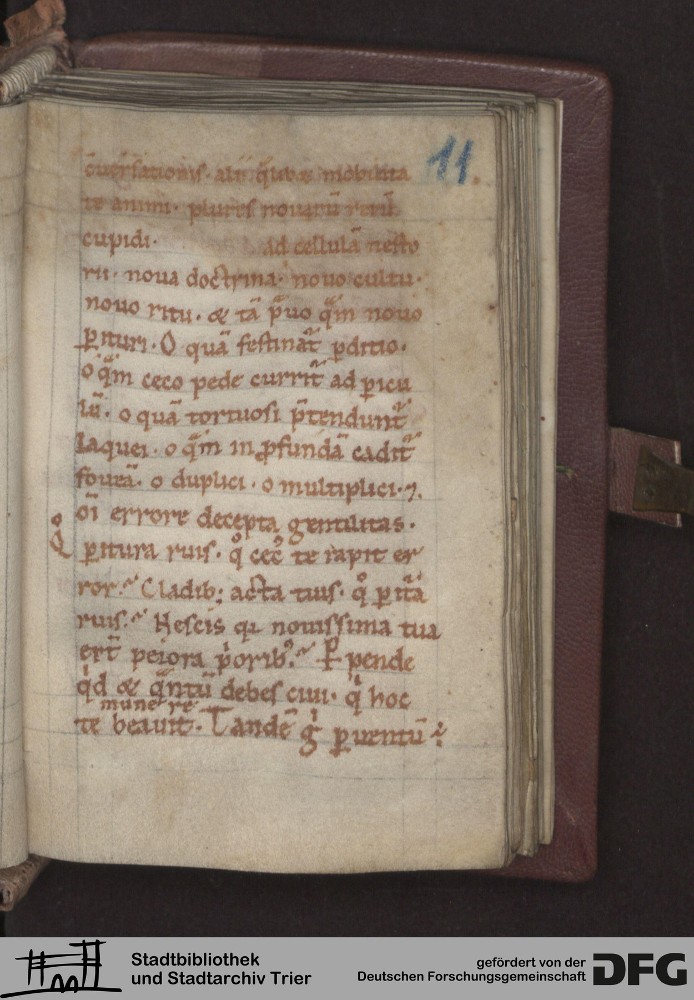 11.
c̄uersationis. alii
te animi. plures nouitatū rerū
cupidi. ad cellulā nesto
rii. noua doctrina. nouo cultu.
nouo ritu. & tā p̄uo q̄m nouo
ꝑituri. O quā festinat᷑ ꝑditio.
o q̄m ceco pede currit᷑ ad ꝑicu
lū. o quā tortuosi p̄tendunt᷑
laquei. o q̄m in ꝓfundā cadit᷑
foueā. o duplici. o multiplici. ⁊.
oī errore decepta gentilitas.
ꝑitura ruis. q̊ cec⁹ te rapit er
ror. Cladib; acta tuis. q̊ ꝑitᷓa
ruis. Nescis qͥ nouissima tua
erт̄ peiora pͥorib⁹. Ꝑpende
qͥd & qᷓntū debes ciui. qͥ hoc
munere
te beauit. Tandē gͥ ꝑuentū
Stadtbibliothek
und Stadtarchiv Trier
gefördert von der
Deutschen Forschungsgemeinschaft
DFG